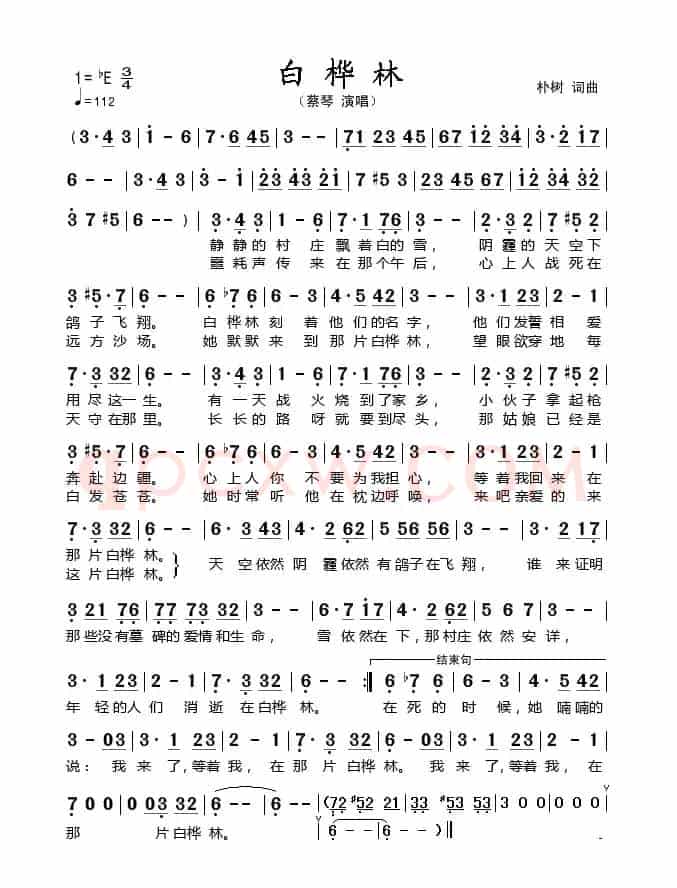 白桦林
1=♭E 3/4
（蔡琴 演唱）
朴树 词曲
♩=112
(3·4 3|1 - 6|7·6 45|3 - -|71 23 45|67 12 34|3·2 17|
6 - -|3·4 3|3 - 1|23 43 21|7 #5 3|23 45 67|12 34 32|
3 7 #5|6 - -)|3·4 3|1 - 6|7·1 76|3 - -|2·3 2|7 #5 7|
静静的村 庄飘着白的雪， 阴霾的天空下
噩耗声传 来在那个午后， 心上人战死在
3 #5·7|6 - -|6 ♭7 6|6 - 3|4·5 42|3 - -|3·1 23|2 - 1|
鸽子飞翔。 白桦林刻 着他们的名字， 他们发誓相 爱
远方沙场。 她默默来 到那片白桦林， 望眼欲穿地 每
7·3 32|6 - -|3·4 3|1 - 6|7·1 76|3 - -|2·3 2|7 #5 7|
用尽这一生。 有一天战 火烧到了家乡， 小伙子拿起枪
天守在那里。 长长的路 呀就要到尽头， 那姑娘已经是
3 #5·7|6 - -|6 ♭7 6|6 - 3|4·5 42|3 - -|3·1 23|2 - 1|
奔赴边疆。 心上人你 不要为我担心， 等着我回来 在
白发苍苍。 她时常听 他在枕边呼唤， 来吧亲爱的 来
7·3 32|6 - -|6·3 43|4·2 62|5 56 56|3 - -|3·2 17|
那片白桦林。
天空依然阴霾依然有鸽子在飞翔， 谁来证明
这片白桦林。
3 21 76|77 73 32|3 - -|6·7 17|4·2 62|5 65 32|3 - -|
那些没有墓碑的爱情和生命， 雪依然在下，那村庄依然安详，
结束句
3·1 23|2 - 1|7·3 32|6 - -:‖6 ♭7 6|6 - 3|4·5 42|
年轻的人们 消逝在白桦林。 在死的时 候，她喃喃的
3 - 03|3·1 23|2 - 1|7·3 32|6 - 03|3·1 23|2 - 1|
说：我来了，等着我，在那片白桦林。我来了，等着我，在
7 0 0|0 03 32|6 - -|6 - -|(72 #52 21|#53 #53 #53|0 0 0|0 0 0|
6 - -|6 - -)‖
那 片白桦林。
4pcxw.com